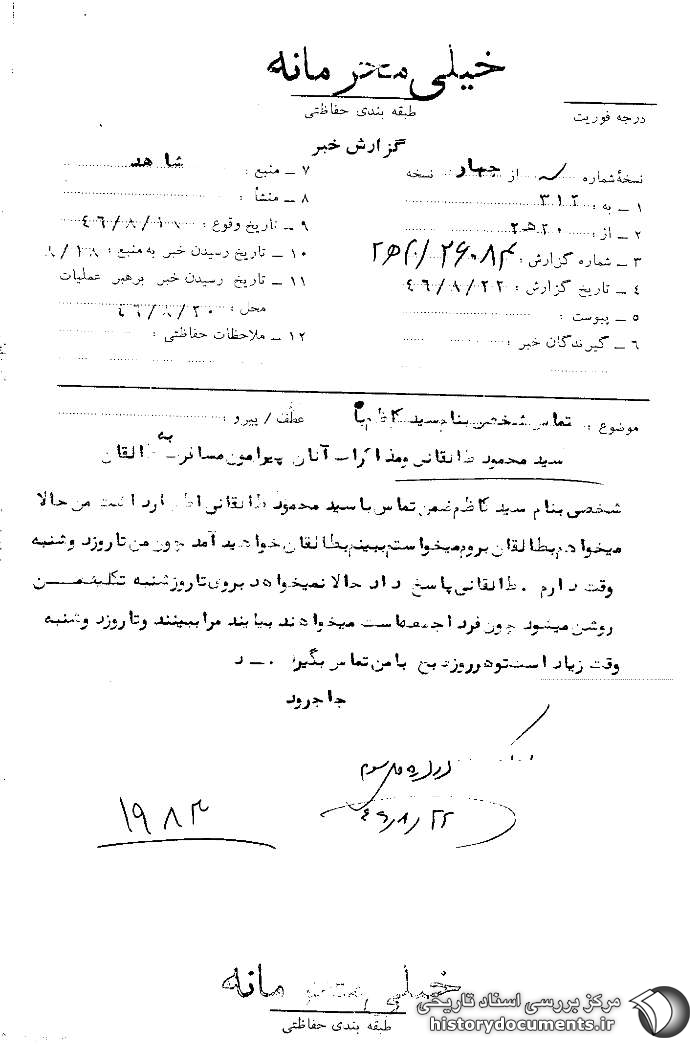 خیلی محرمانه
طبقه بندی حفاظتی
درجه فوریت
گزارش خبر
نسخهٔ شماره سه از چهار نسخه
۱ ـ به : ۳۱۲
۲ ـ از : ۲۰ﻫ۲
۳ ـ شماره گزارش :
۴ ـ تاریخ گزارش : ۴۶/۸/۲۲
۵ ـ پیوست :
۶ ـ گیرندگان خبر :
۷ ـ منبع : شاهد
۸ ـ منشأ :
۹ ـ تاریخ وقوع : ۴۶/۸/۱۸
۱۰ ـ تاریخ رسیدن خبر به منبع : ۸/۱۸
۱۱ ـ تاریخ رسیدن خبر برهبر عملیات
محل : ۴۶/۸/۲۰
۱۲ ـ ملاحظات حفاظتی :
موضوع : تماس شخصی بنام سید کاظم با
عطف / پیرو :
سید محمود طالقانی ومذاکرات آنان پیرامون مسافرت به طالقان
شخصی بنام سید کاظم ضمن تماس با سید محمود طالقانی اظهار داشت من حالا
میخواهم بطالقان بروم میخواستم ببینم بطالقان خواهید آمد چون من تا روزدوشنبه
وقت دارم . طالقانی پاسخ داد حالا نمیخواهد بروی تا روز شنبه تکلیف من
روشن میشود چون فردا جمعه است میخواهند بیایند مرا ببینند و تا روز دوشنبه
وقت زیاد است تو هر روز صبح با من تماس بگیر . ـ د
جاجرود
اداره کل سوم
۴۶/۸/۲۲
۱۹۸۳
خیلی محرمانه
طبقه بندی حفاظتی
مرکز بررسی اسناد تاریخی
historydocuments.ir